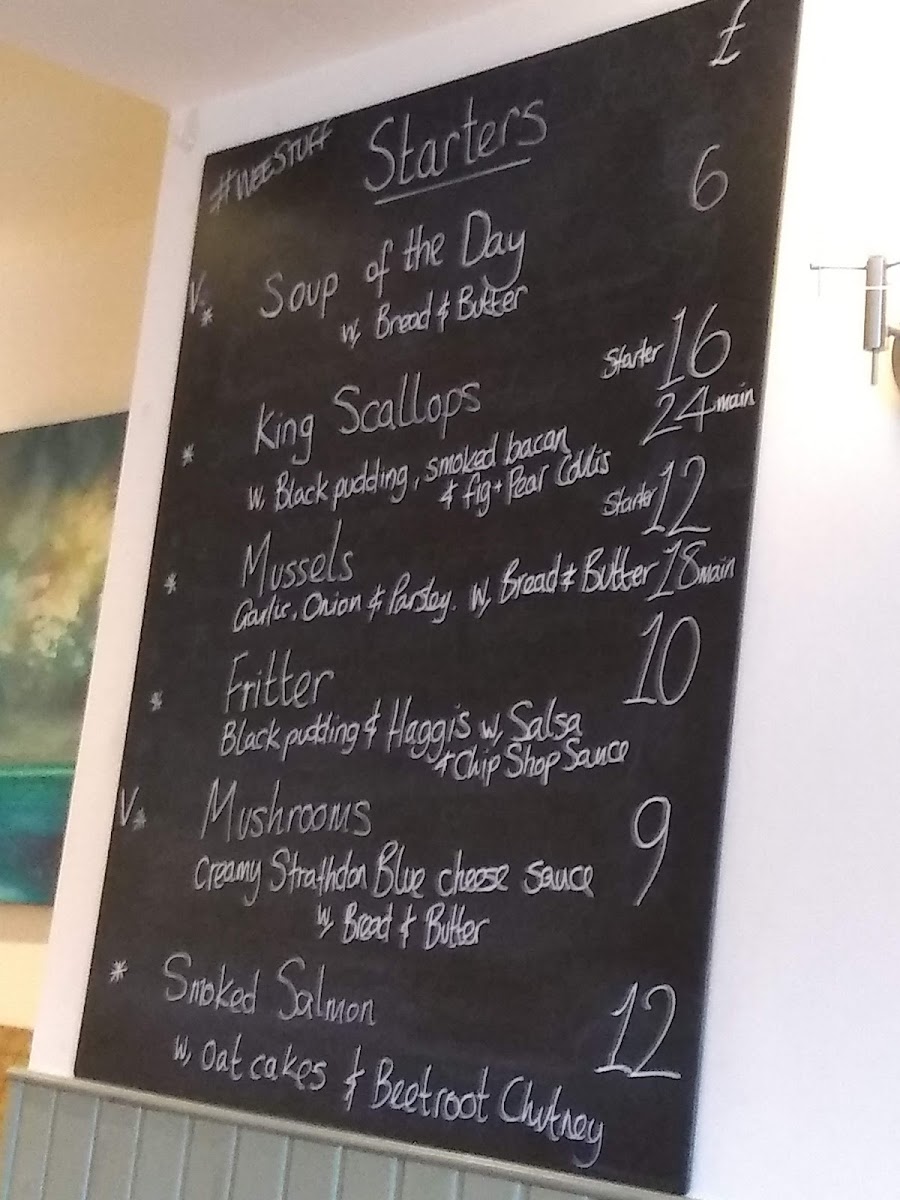 £
#WEESTUFF Starters
6
V* Soup of the Day
w, Bread & Butter
Starter 16
* King Scallops 24 main
w, Black pudding, smoked bacon
& fig + Pear Collis
Starter 12
* Mussels
Garlic, Onion & Parsley. w, Bread & Butter 18 main
* Fritter 10
Black pudding & Haggis w, Salsa
+ Chip Shop Sauce
V* Mushrooms 9
Creamy Strathdon Blue cheese sauce
w, Bread & Butter
* Smoked Salmon 12
w, Oat cakes & Beetroot Chutney